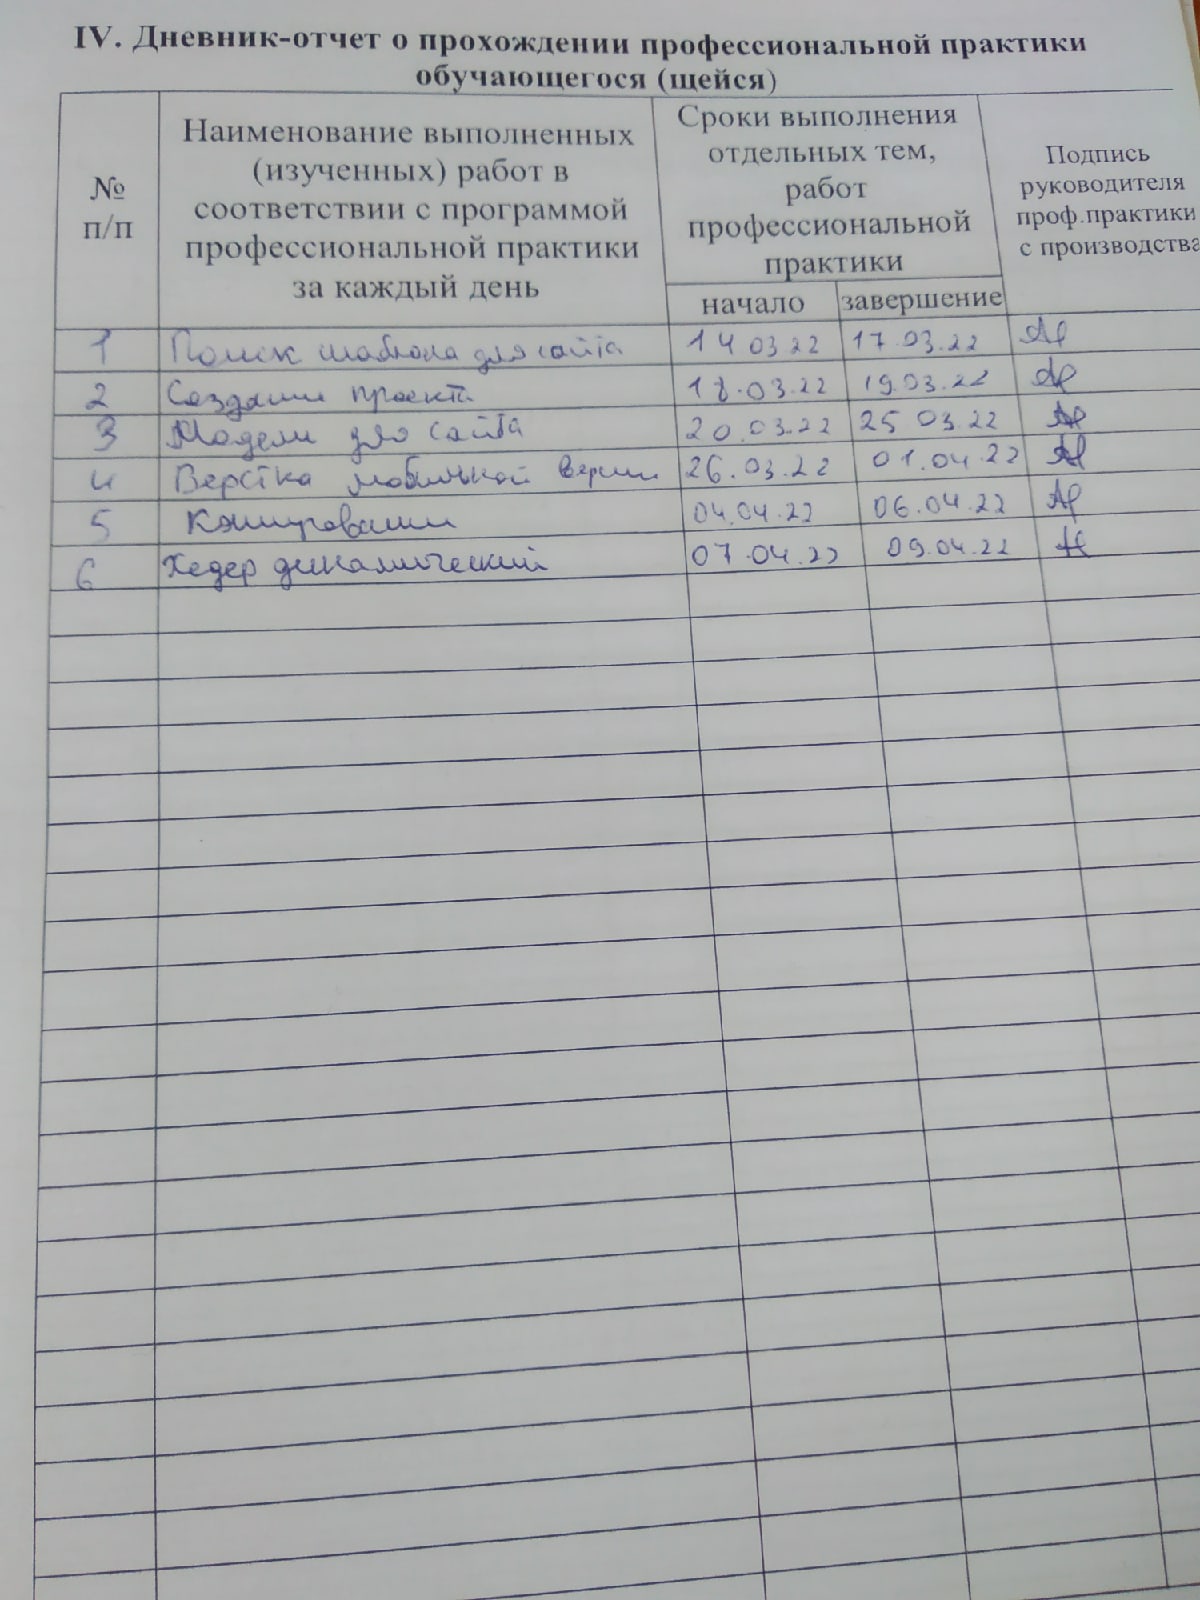 IV. Дневник-отчет о прохождении профессиональной практики
обучающегося (щейся)
№
п/п
Наименование выполненных
(изученных) работ в
соответствии с программой
профессиональной практики
за каждый день
Сроки выполнения
отдельных тем,
работ
профессиональной
практики
начало завершение
Подпись
руководителя
проф.практики
с производства
1 Поиск шаблона для сайта 14 03 22 17.03.22
2 Создание проекта 18.03.22 19.03.22
3 Модели для сайта 20.03.22 25 03.22
4 Верстка мобильной версии 26.03.22 01.04.22
5 Кэширование 04.04.22 06.04.22
6 Хедер динамический 07.04.22 09.04.22